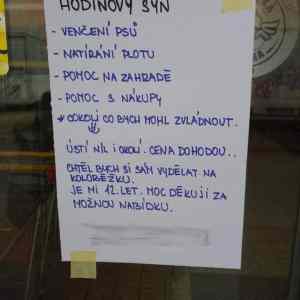 HODINOVÝ SYN
- VENČENÍ PSŮ
- NATÍRÁNÍ PLOTU
- POMOC NA ZAHRADĚ
- POMOC S NÁKUPY
COKOLI CO BYCH MOHL ZVLÁDNOUT.
ÚSTÍ N/L I OKOLÍ. CENA DOHODOU..
CHTĚL BYCH SI SÁM VYDĚLAT NA
KOLOBĚŽKU.
JE MI 12 LET. MOC DĚKUJI ZA
MOŽNOU NABÍDKU.